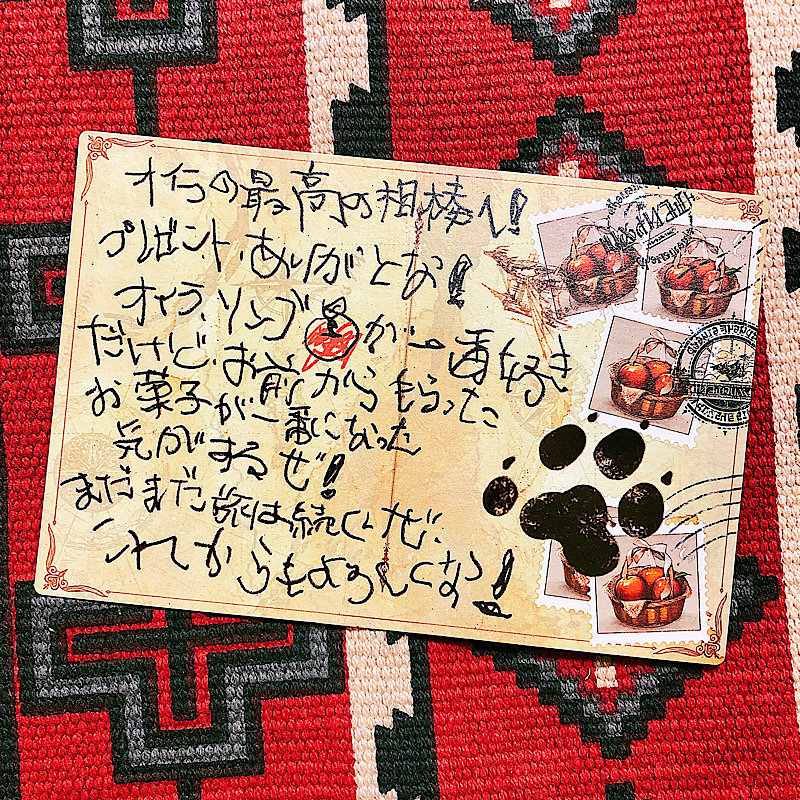 オイラの最高の相棒へ!
プレゼント、ありがとな!
オイラ、リンゴが一番好き
だけど、お前からもらった
お菓子が一番になった
気がするぜ!
まだまだ旅は続くぜ、
これからもよろしくな!